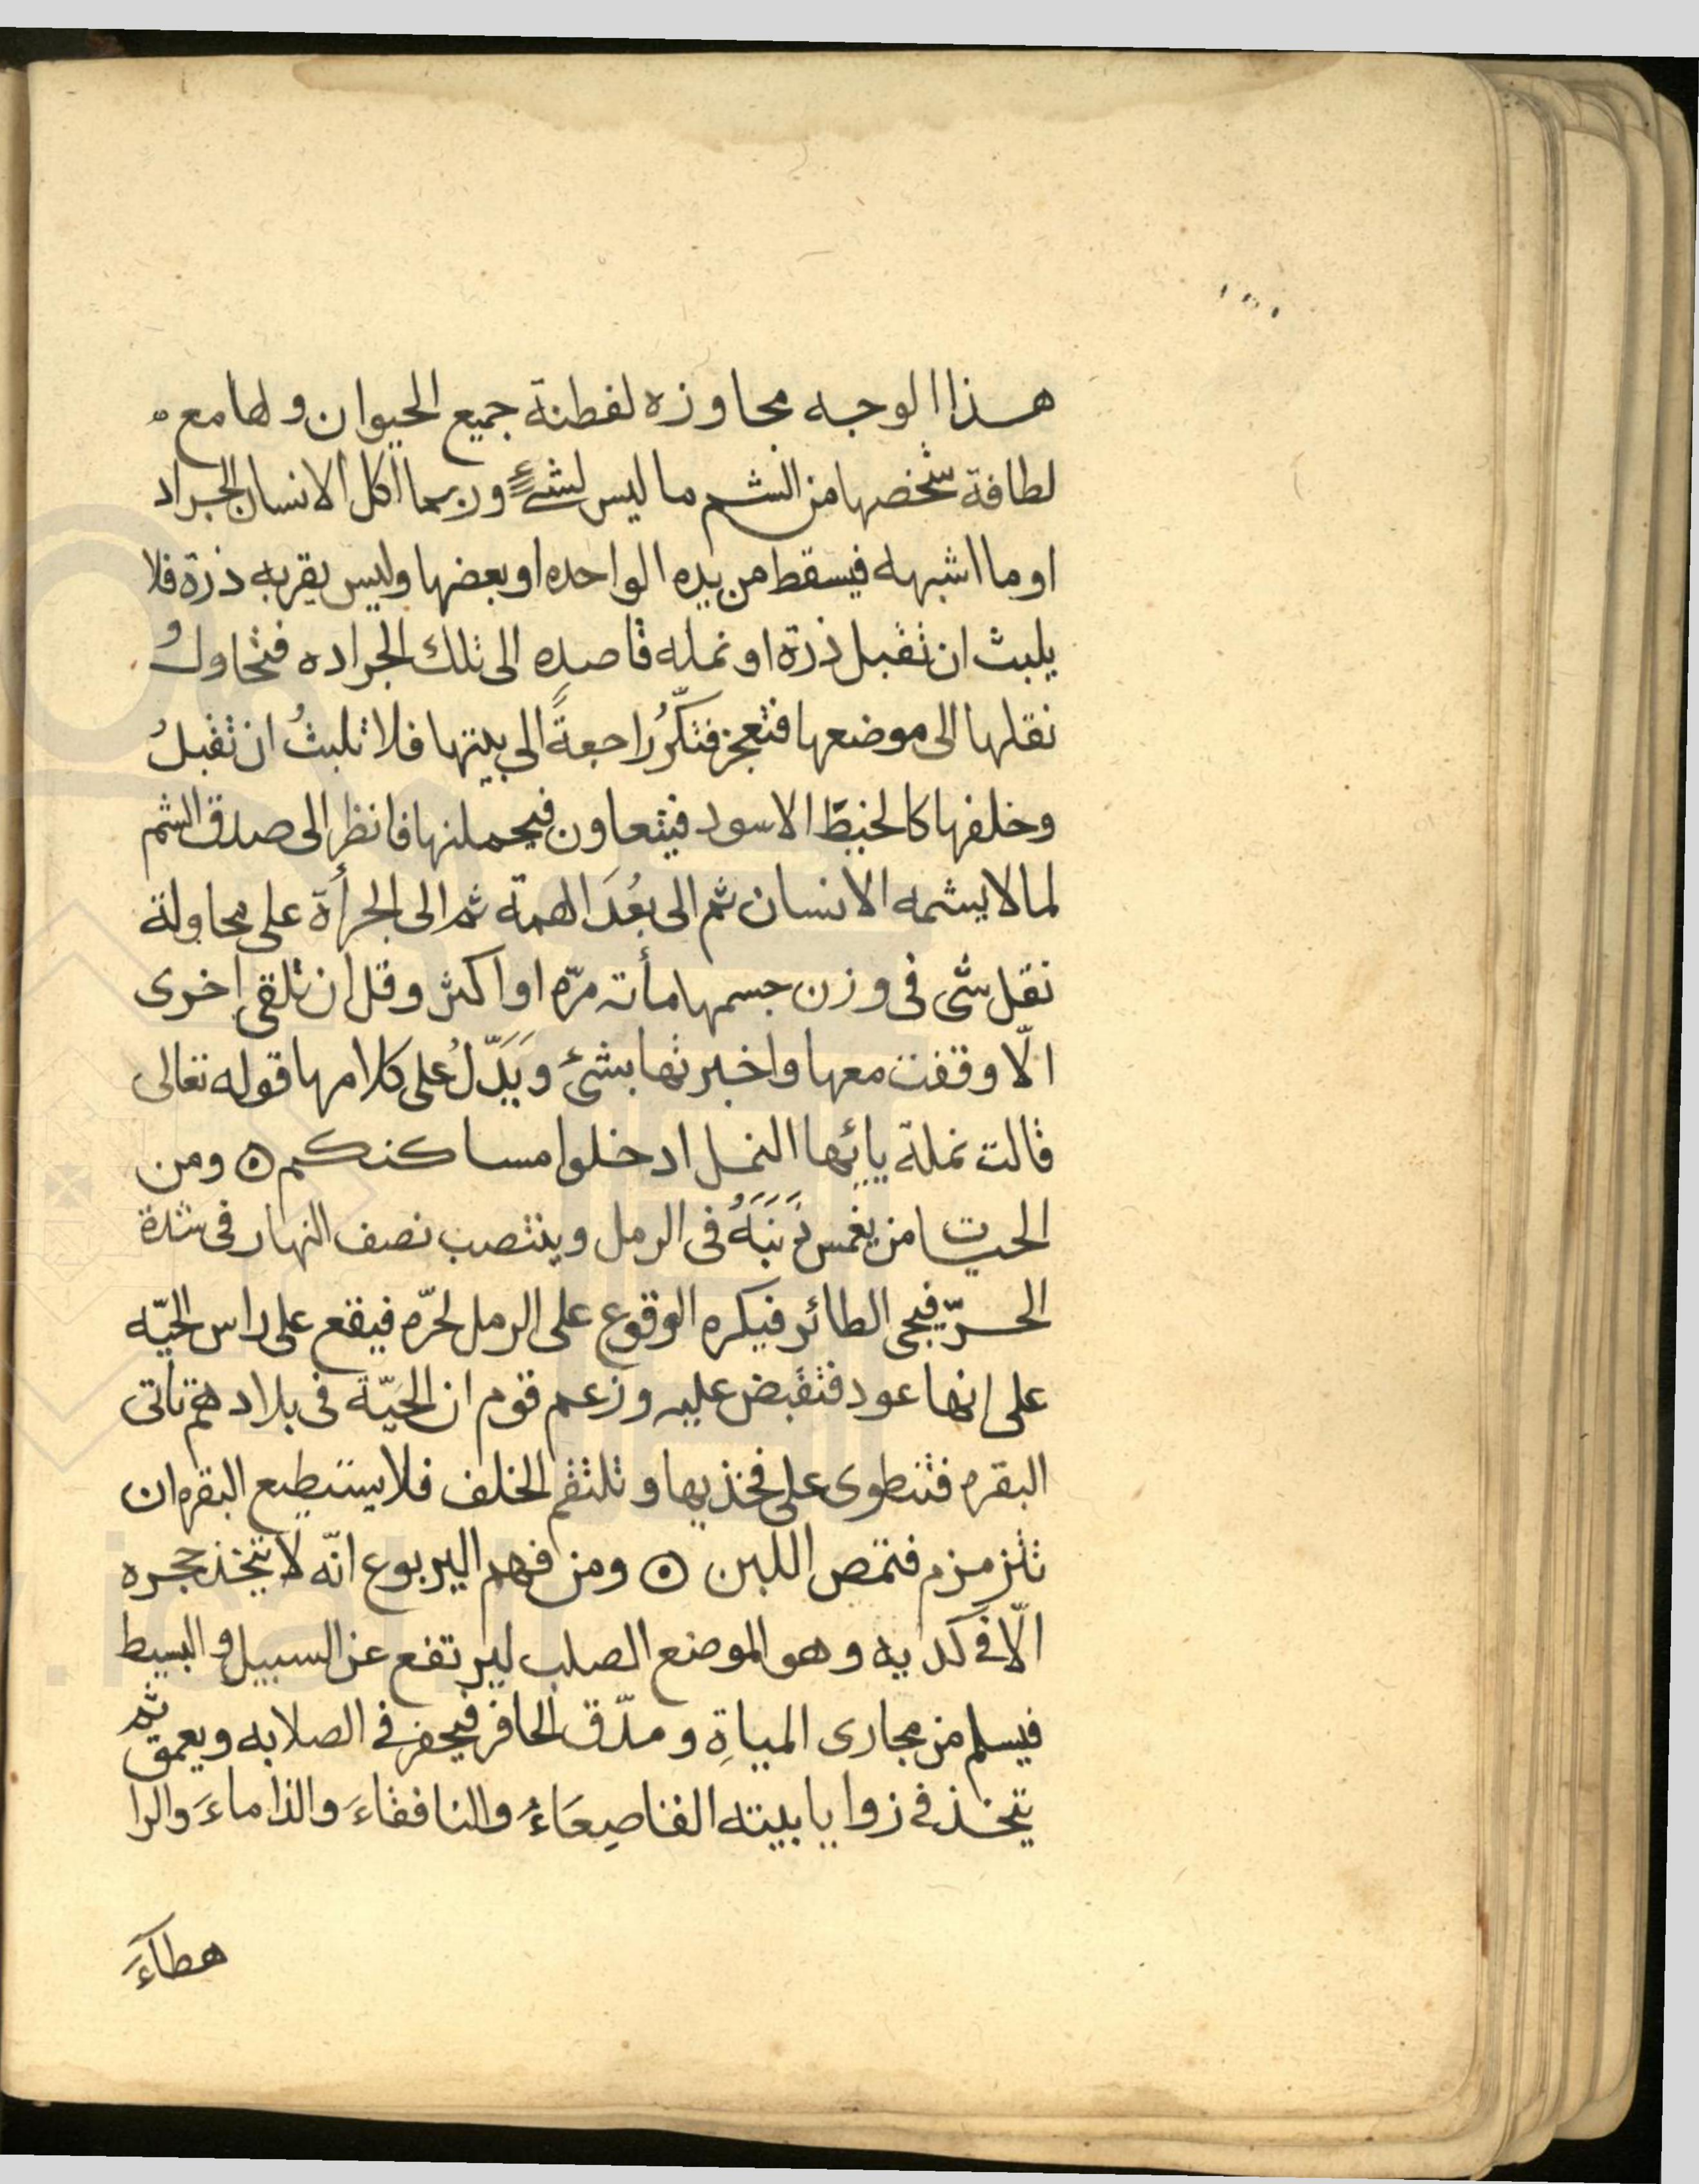 هذا الوجه مجاوزه لفطنة جميع الحيوان ولها مع
لطافة شخصها من الشم ما ليس لشىءٍ وربما اكل الانسان الجراد
او ما اشبهه فيسقط من يده الواحده او بعضها وليس بقربه ذرة فلا
يلبث ان تقبل ذرة او نمله قاصده الى تلك الجراده فتحاولُ
نقلها الى موضعها فتعجز فتكرُّ راجعةً الى بيتها فلا تلبثُ ان تقبلُ
وخلفها كالخيط الاسود فيتعاون فيحملنها فانظر الى صدق الشم
لما لا يشمه الانسان ثم الى بُعد الهمة ثم الى الجرأة على محاولة
نقل شى فى وزن جسمها مأته مرّه او اكثر وقل ان تلقى اخرى
الّا وقفت معها واخبرتها بشىء ويَدّلُ على كلامها قوله تعالى
قالت نملة يائها النمل ادخلوا مساكنكم ۝ ومن
الحيات من يغمس ذَنَبَهُ فى الرمل وينتصب نصف النهار فى شدة
الحرّ فيجى الطائر فيكره الوقوع على الرمل لحرّه فيقع على راس الحيّه
على انها عود فتقبض عليه وزعم قوم ان الحَيّة فى بلادهم تاتى
البقره فتنطوى على فخذيها وتلتقم الخلف فلا يستطيع البقره ان
تتزمزم فتمص اللبن ۝ ومن فهم اليربوع انّه لا يتخذ جحره
الّا فى كديه وهو الموضع الصلب ليرتفع عن السبيل والبسيط
فيسلم من مجارى المياةِ ومدّق الحافر فيحفر فى الصلابه ويعمق ثم
يتخذ فى زوايا بيته القاصِعَاءُ والنافقاءَ والذاماءَ والرا
هطآءَ